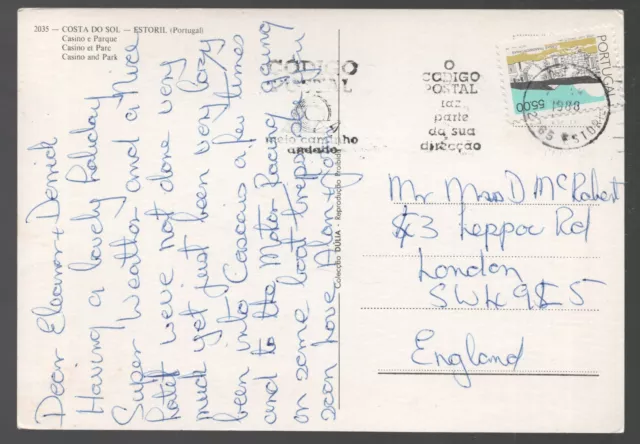 2035 — COSTA DO SOL — ESTORIL (Portugal)
Casino e Parque
Casino et Parc
Casino and Park
Dear Eleanor + Derrick
Having a lovely holiday
Super Weather and a Nice
hotel we've not done very
much yet just been very lazy
been into Cascais a few times
and to the Motor Racing going
on some boat trips
soon love Alan +
Colecção DÚLIA - Reprodução
CÓDIGO
POSTAL
meio caminho
andado
O
CÓDIGO
POSTAL
faz
parte
da sua
direcção
PORTUGAL
55.00
1988
2765 ESTORIL
Mr Mrs D McRobert
43 Leppoc Rd
London
SW4 9LS
England